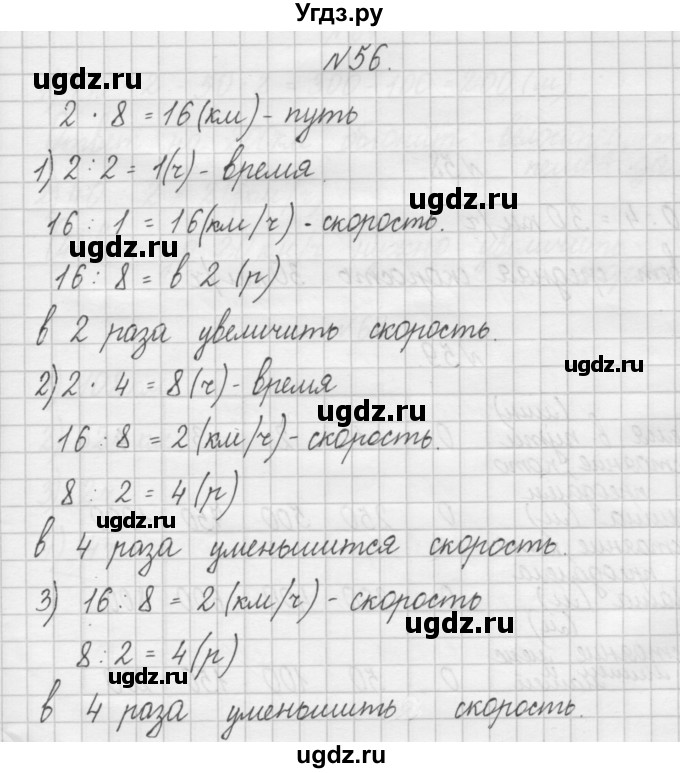 Угдз.ру
№56.
ugdz.ru
2 · 8 = 16 (км) - путь
1) 2 : 2 = 1 (ч) - время.
ugdz.ru
16 : 1 = 16 (км/ч) - скорость.
ugdz.ru
16 : 8 = в 2 (р)
в 2 раза увеличить скорость.
ugdz.ru
2) 2 · 4 = 8 (ч) - время
ugdz.ru
16 : 8 = 2 (км/ч) - скорость.
8 : 2 = 4 (р)
ugdz.ru
в 4 раза уменьшится скорость.
3) 16 : 8 = 2 (км/ч) - скорость
ugdz.ru
8 : 2 = 4 (р)
ugdz.ru
в 4 раза уменьшить скорость.
ugdz.ru